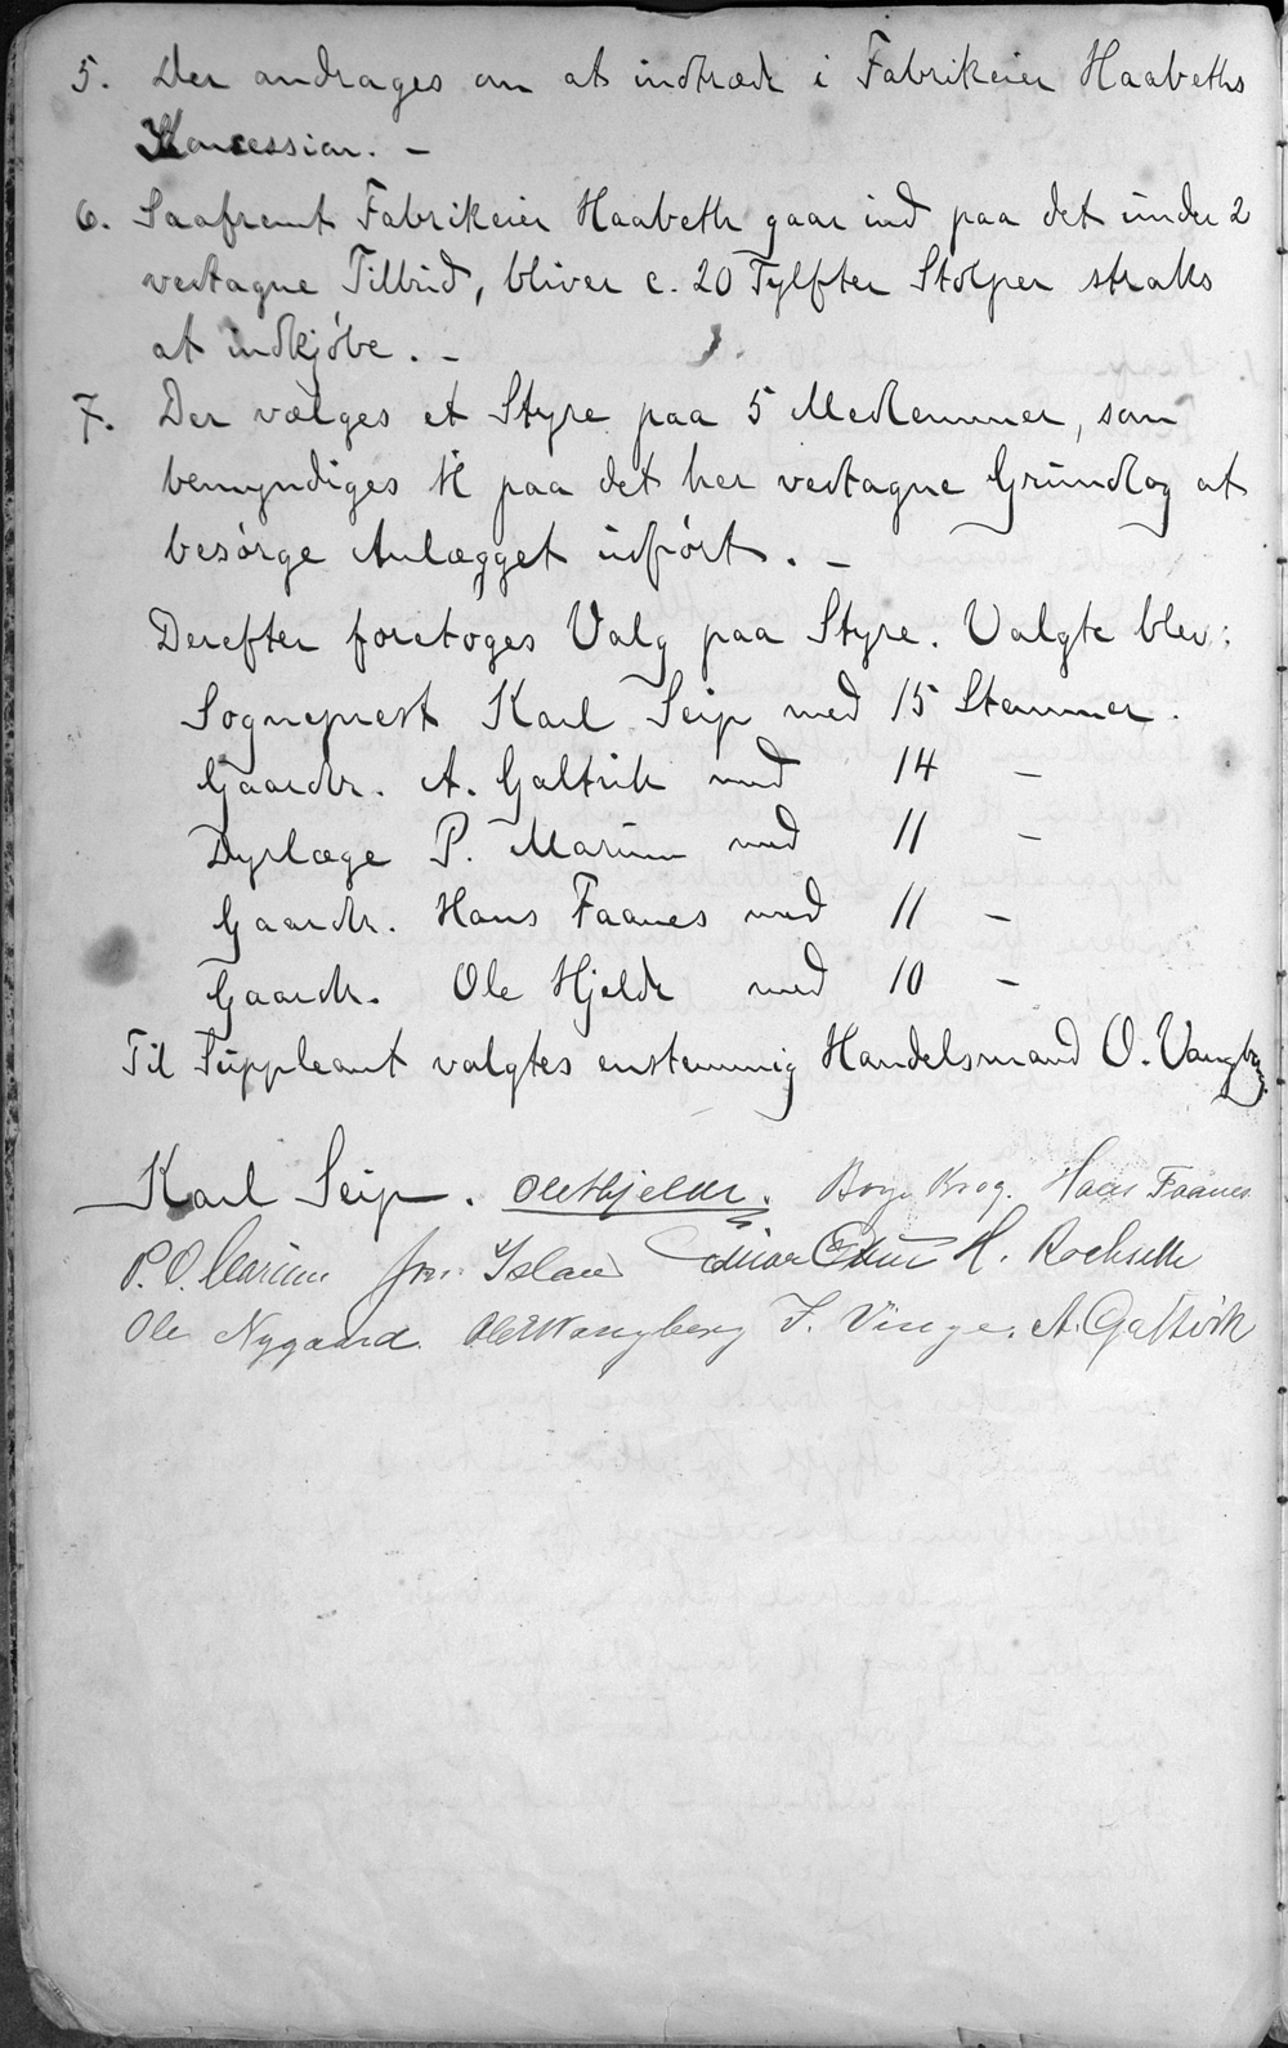 5. Der andrages om at indtræde i Fabrikeier Haabeths
Koncession. -
6. Saafremt Fabrikeier Haabeth gaar ind paa det under 2
vedtagne Tilbud, bliver c. 20 Tylfter Stolper straks
at indkjøbe. -
7. Der vælges et Styre paa 5 Medlemmer, som
bemyndiges til paa det her vedtagne Grundlag at
besørge Anlægget udført. -
Derefter foretoges Valg paa Styre. Valgte blev:
Sogneprest Karl Seip med 15 Stemmer.
Gaardbr. A. Galtvik med 14 -
Dyrlæge P. Marum med 11 -
Gaardbr. Hans Faanes med 11 -
Gaardbr. Ole Hjelde med 10 -
Til Suppleant valgtes enstemmig Handelsmand O. Vangberg.
Karl Seip. Ole Hjelde. Borge Krog. Hans Faanes
P. O. Marum Jon Islan H. Rochseth
Ole Nygaard. Ole Wangberg J. Vinge. A. Galtvik